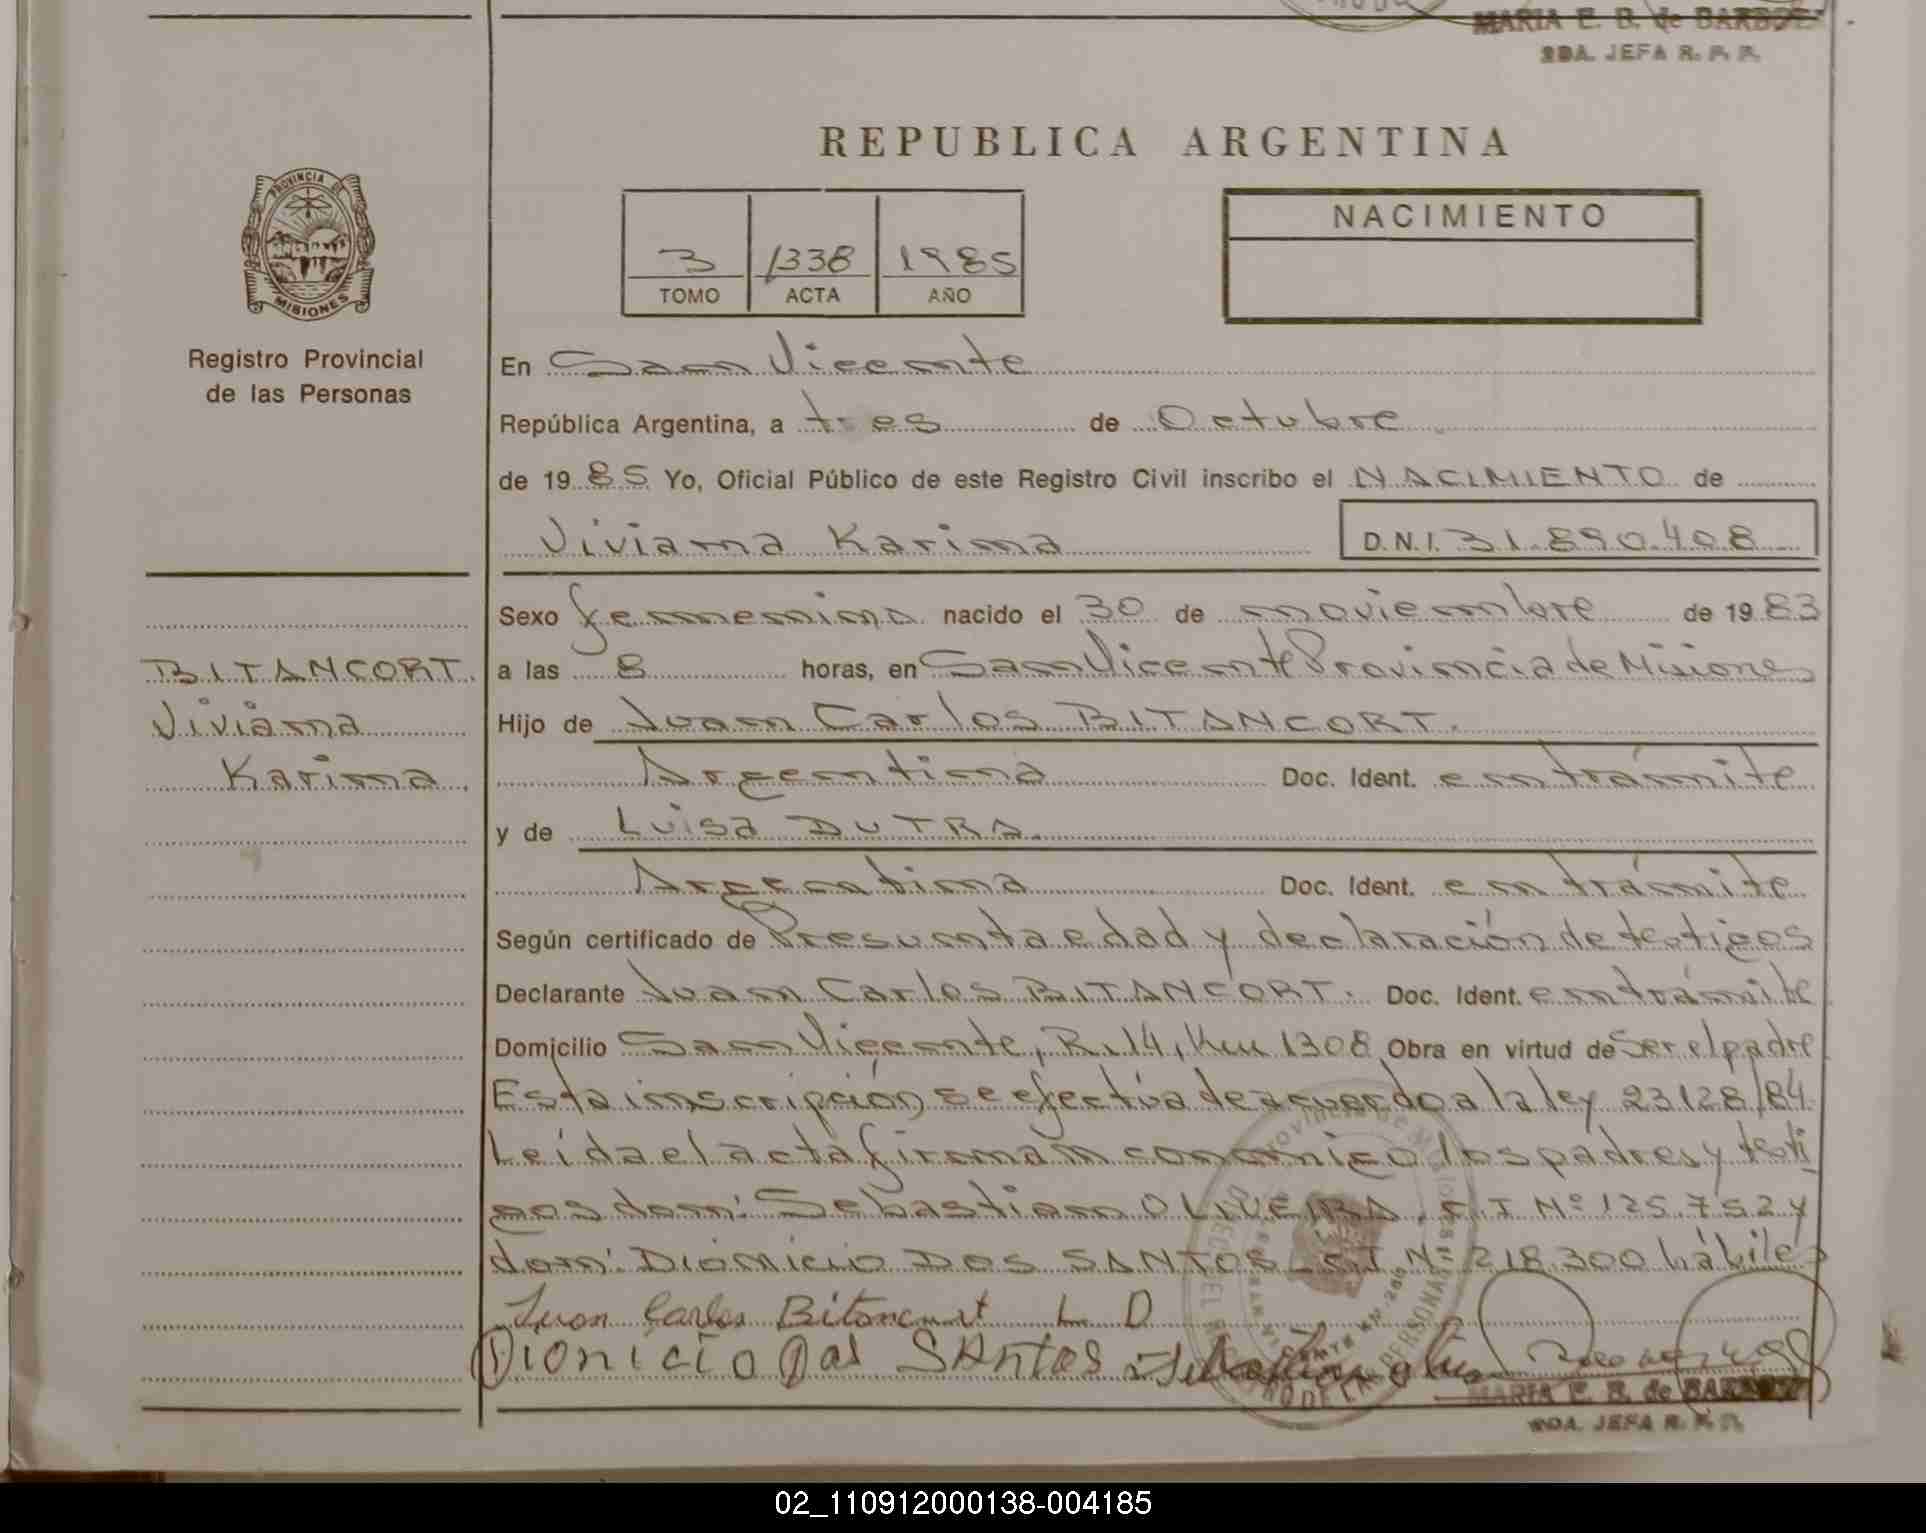 MARIA E. B. de BARBOZ
2DA. JEFA R. P. P.
REPUBLICA ARGENTINA
PROVINCIA DE
MISIONES
Registro Provincial
de las Personas
3 1338 1985
TOMO ACTA AÑO
NACIMIENTO
En San Vicente
República Argentina, a tres de Octubre
de 1985 Yo, Oficial Público de este Registro Civil inscribo el NACIMIENTO de
Viviana Karina D.N.I. 31.890.408
BITANCORT.
Viviana
Karina.
Sexo femenino nacido el 30 de noviembre de 1983
a las 8 horas, en San Vicente Provincia de Misiones
Hijo de Juan Carlos BITANCORT.
Argentina Doc. Ident. en trámite
y de Luisa DUTRA.
Argentina Doc. Ident. en trámite
Según certificado de Presunta edad y declaración de testigos
Declarante Juan Carlos BITANCORT. Doc. Ident. en trámite
Domicilio San Vicente, R.14, Km 1308 Obra en virtud de Ser el padre
Esta inscripción se efectúa de acuerdo a la ley 23128/84.
Leída el acta firman conmigo los padres y testi
gos don: Sebastian OLIVEIRA. C.I Nº 125.752 y
don: DIONICIO DOS SANTOS C.I Nº 218.300 hábiles
Juan Carlos Bitancort L D
Dionicio Dos SAntos
MARIA E. B. de BARBOZ
2DA. JEFA R. P. P.
02_110912000138-004185